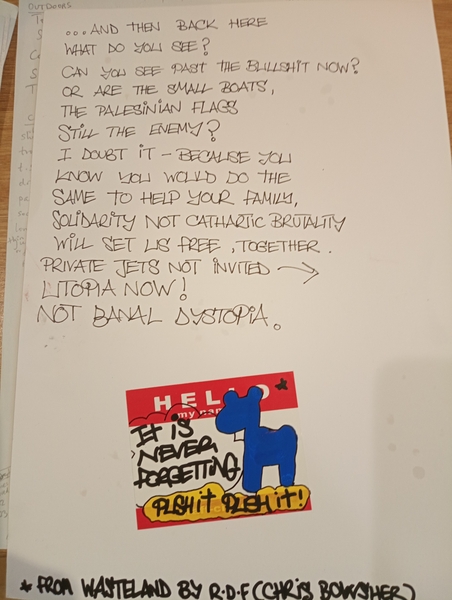 ...AND THEN BACK HERE
WHAT DO YOU SEE?
CAN YOU SEE PAST THE BULLSHIT NOW?
OR ARE THE SMALL BOATS,
THE PALESINIAN FLAGS
STILL THE ENEMY?
I DOUBT IT - BECAUSE YOU
KNOW YOU WOULD DO THE
SAME TO HELP YOUR FAMILY,
SOLIDARITY NOT CATHARTIC BRUTALITY
WILL SET US FREE, TOGETHER.
PRIVATE JETS NOT INVITED →
UTOPIA NOW!
NOT BANAL DYSTOPIA.
HELLO *
my nam
IT IS
NEVER
FORGETTING
PUSH IT PUSH IT!
* FROM WASTELAND BY R.D.F (CHRIS BOWSHER)